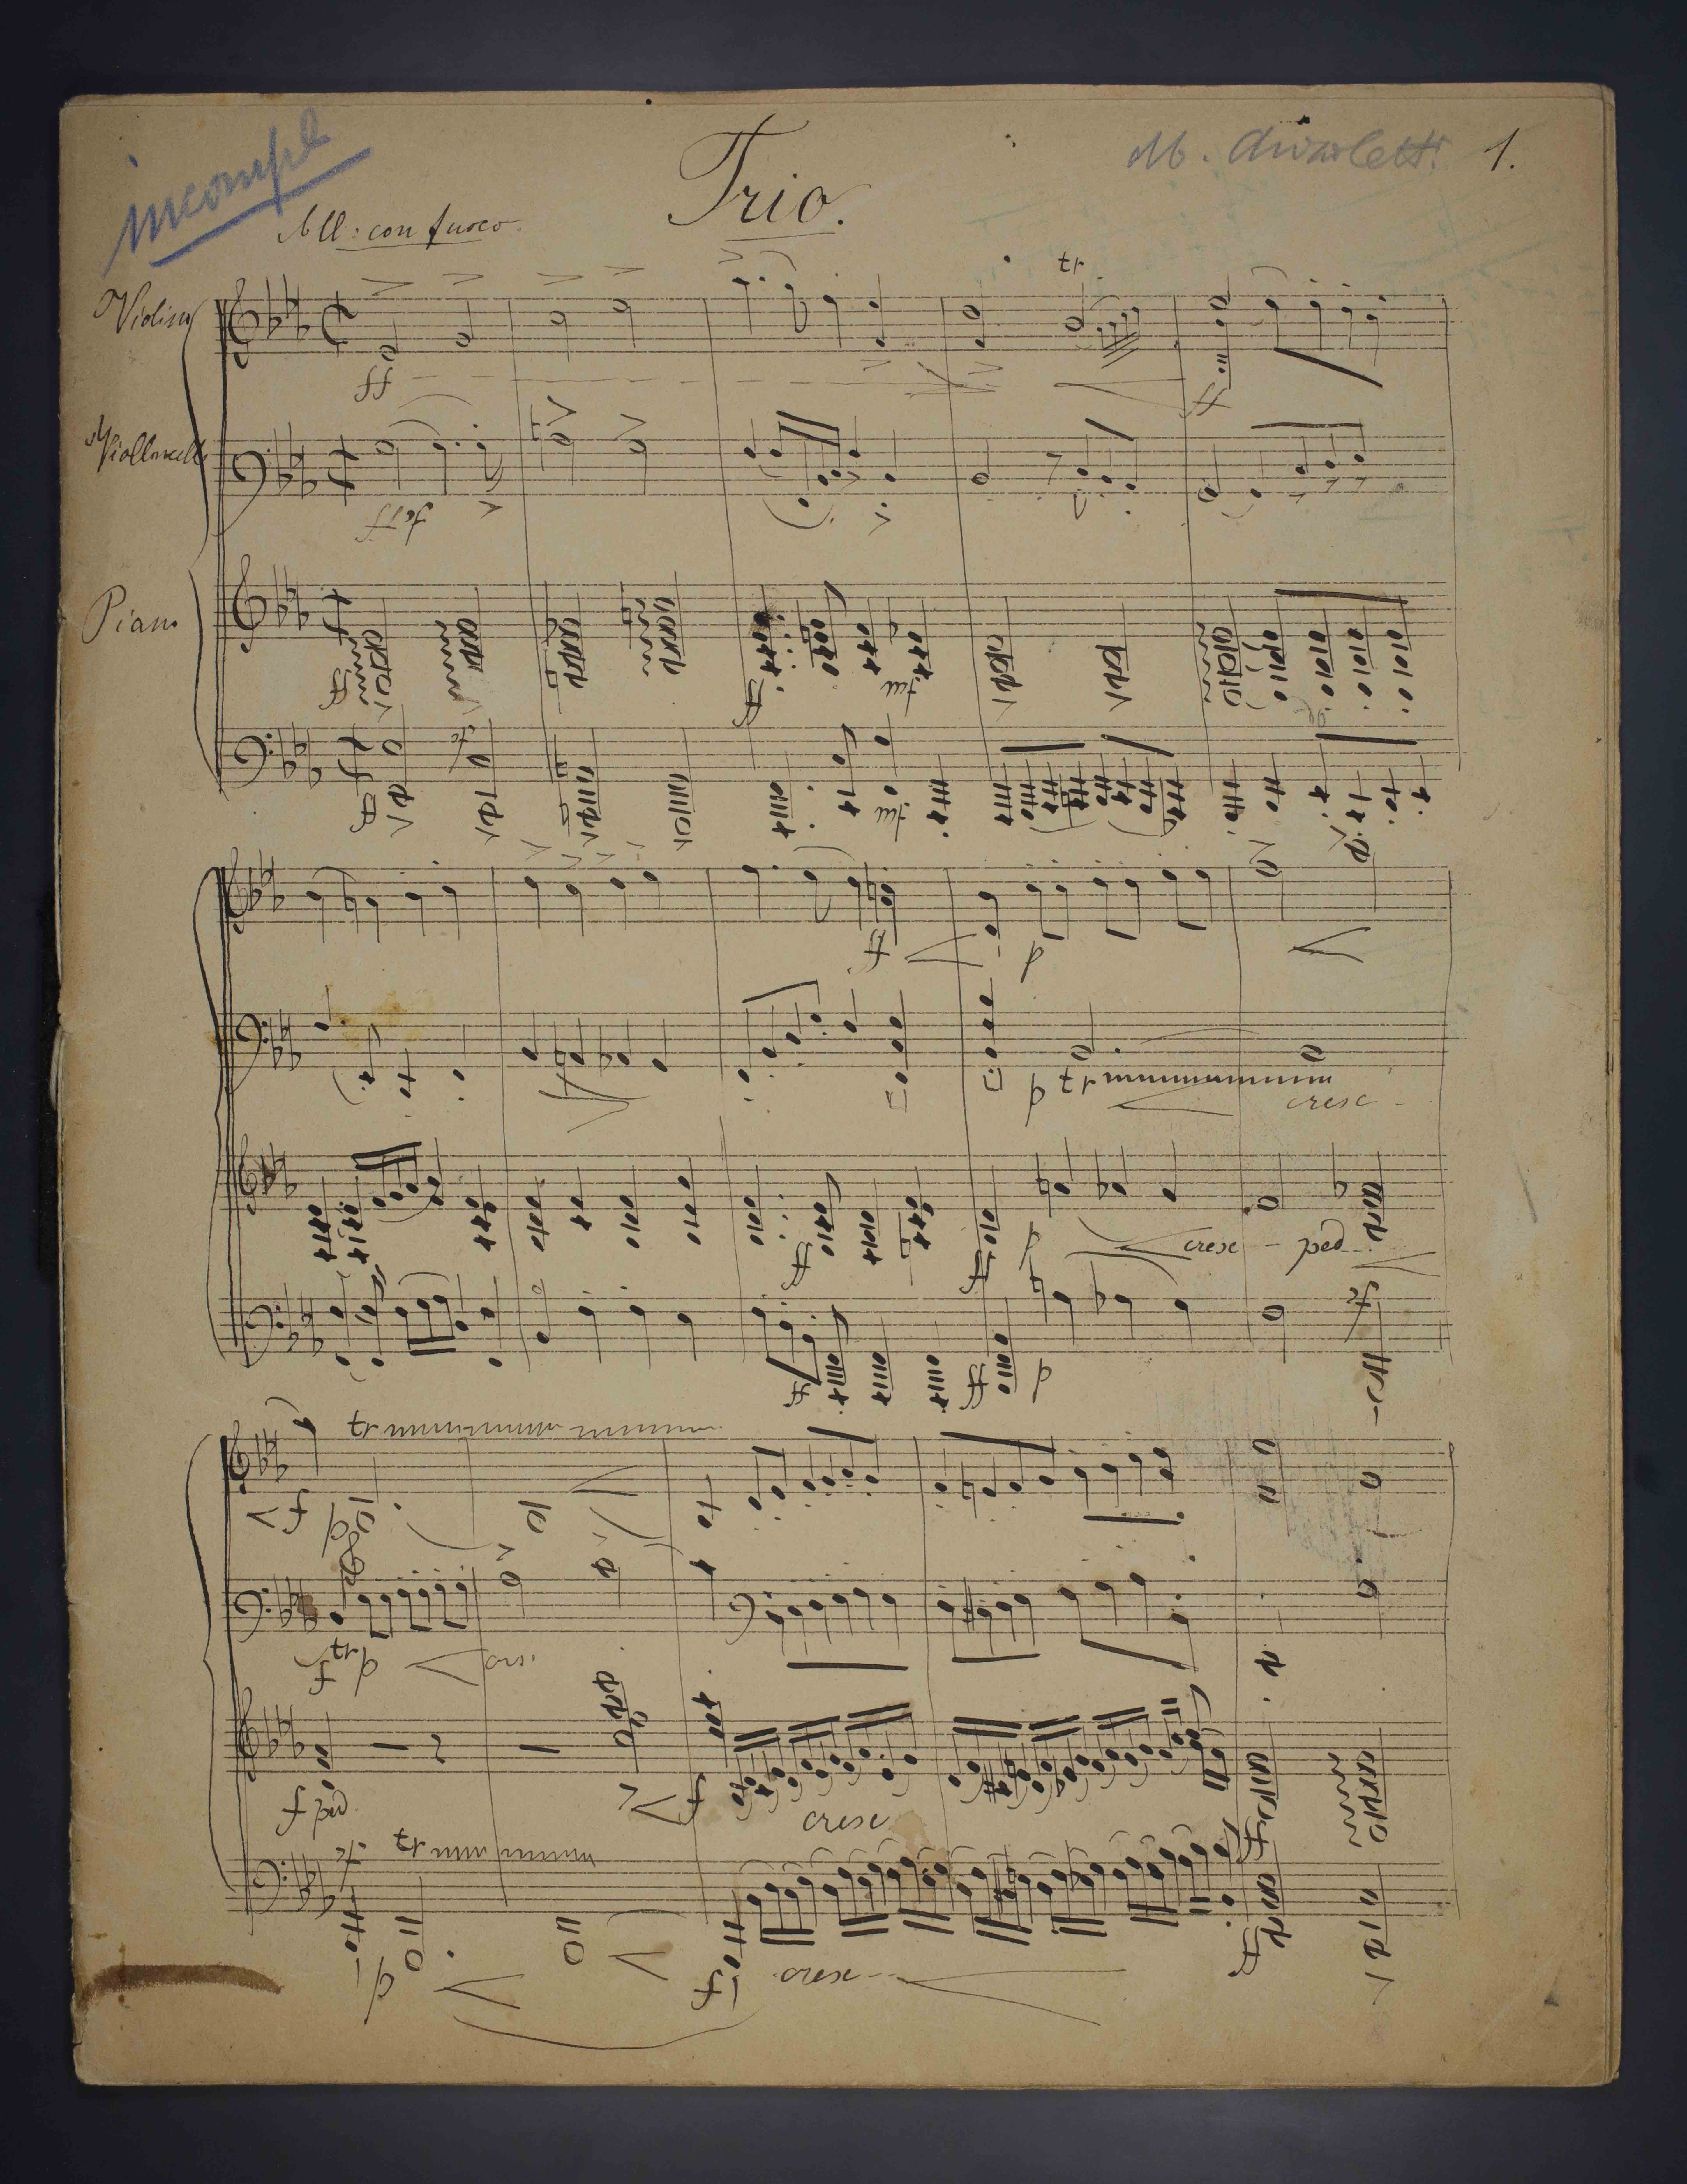 incompl
M. 1.
Trio.
All: con fuoco.
Violino
tr
ff
ff
Violloncello
Piano
ff
ff
ff
f
p
p tr
cresc -
ff
ff
p
cresc - ped
ff
ff
p
tr
f
p
f tr p
f ped
f
cresc
tr
p
f
cresc --
ff
ff